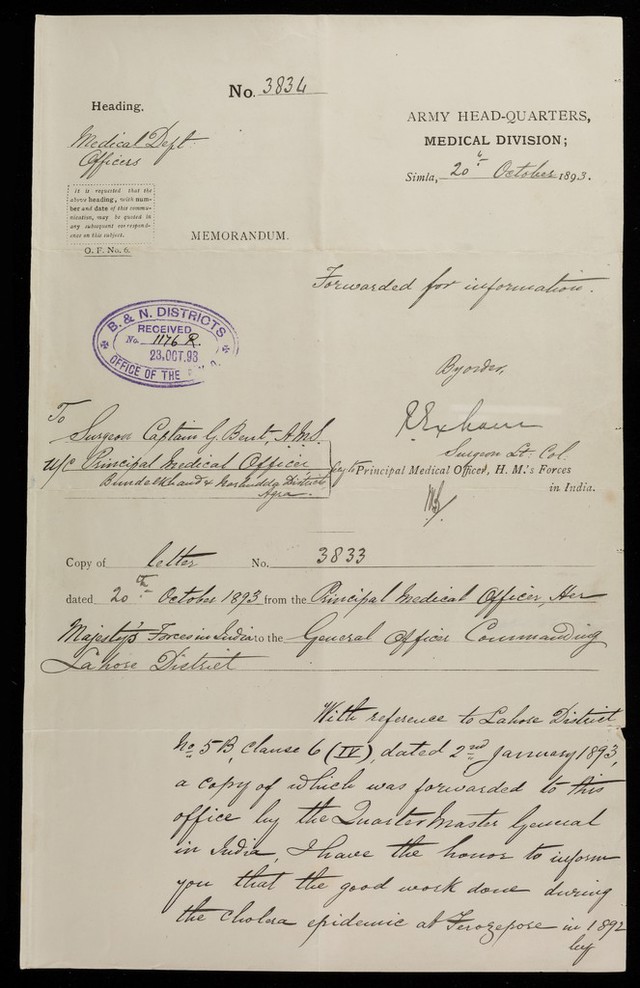 No. 3834
Heading.
Medical Dept
Officers
It is requested that the
above heading, with num-
ber and date of this commu-
nication, may be quoted in
any subsequent correspond-
ence on this subject.
O. F. No. 6.
ARMY HEAD-QUARTERS,
MEDICAL DIVISION;
Simla, 20th October 1893.
MEMORANDUM.
Forwarded for information.
B. & N. DISTRICTS
RECEIVED
No. 1176 R.
23.OCT.93
OFFICE OF THE P.M.O.
By order,
Surgeon Lt. Col.
for Principal Medical Officer, H. M.'s Forces
in India.
To
Surgeon Captain G. Bent, A.M.S.
u/c Principal Medical Officer
Bundelkhand & Narbudda Districts
Agra.
Copy of letter No. 3833
dated 20th October 1893 from the Principal Medical Officer, Her
Majesty's Forces in India to the General Officer Commanding
Lahore District
With reference to Lahore District
No 5B, Clause 6 (IV), dated 2nd January 1893,
a copy of which was forwarded to this
office by the Quarter Master General
in India, I have the honor to inform
you that the good work done during
the cholera epidemic at Ferozepore in 1892
by